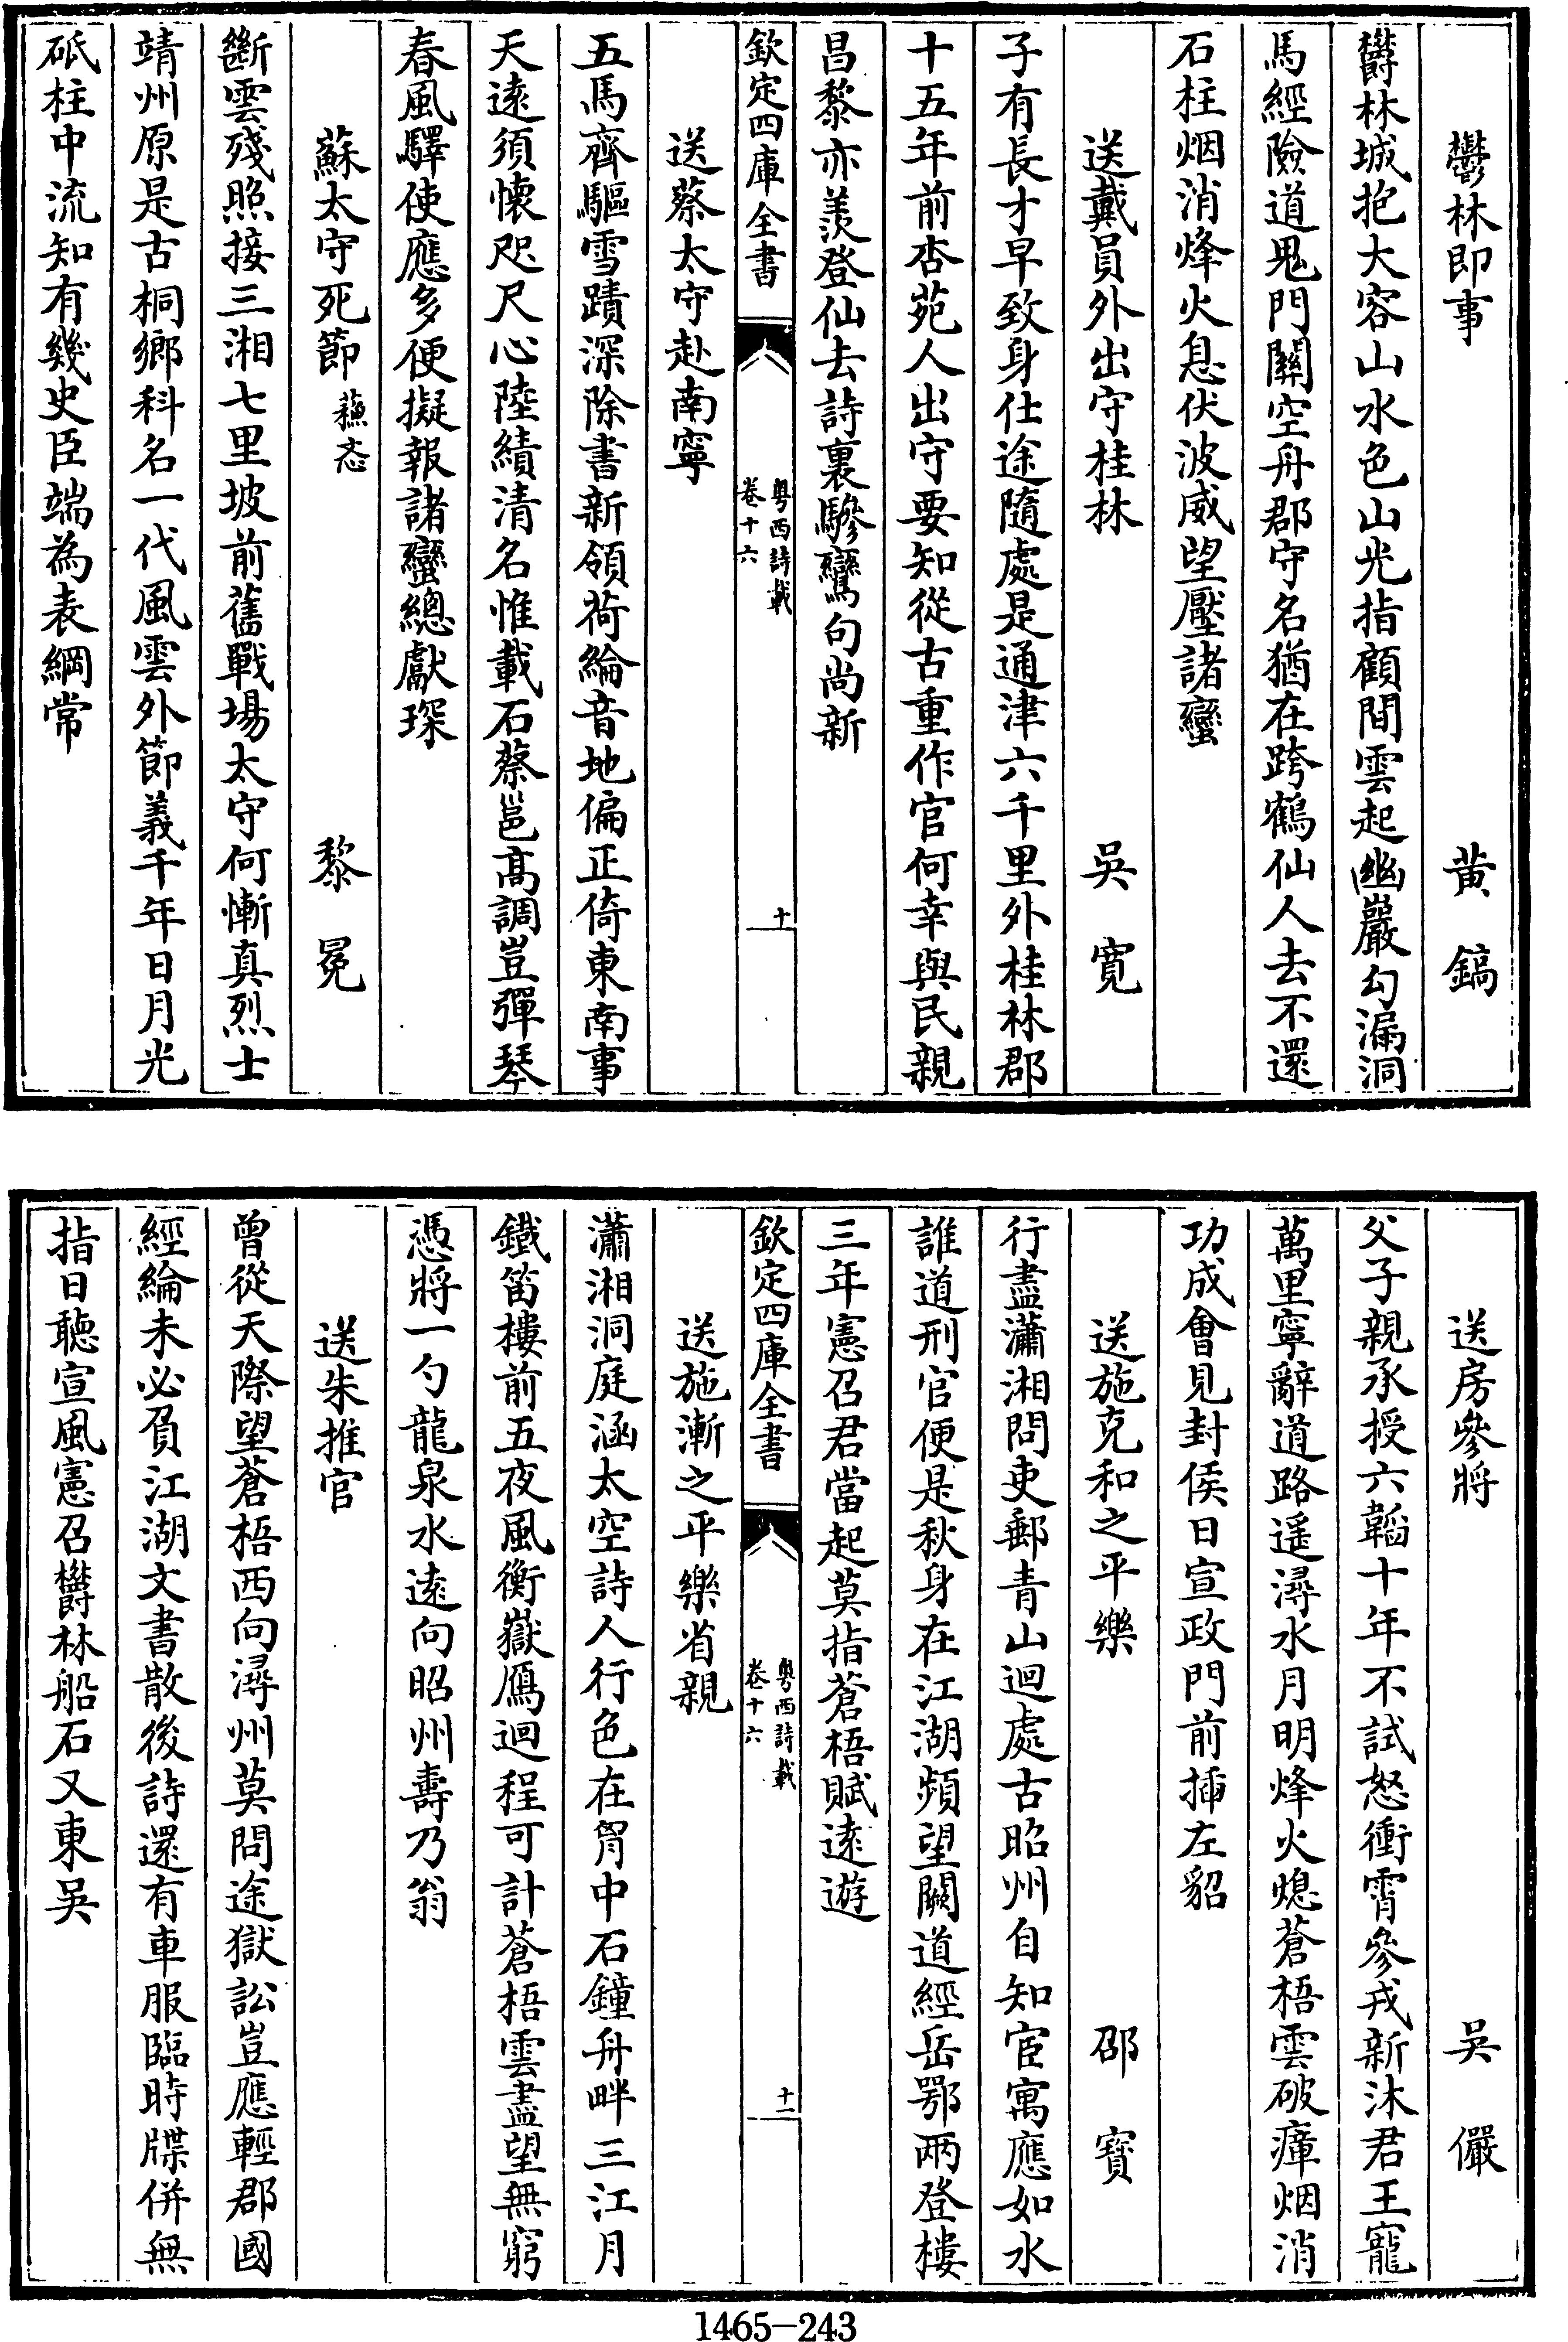 鬱林即事　黄鎬
欝林城抱大容山水色山光指顧間雲起幽巖勾漏洞
馬經險道鬼門關空舟郡守名猶在跨鶴仙人去不還
石柱烟消烽火息伏波威望壓諸蠻
送戴員外出守桂林　吳寛
子有長才早致身仕途隨處是通津六千里外桂林郡
十五年前杏苑人出守要知從古重作官何幸與民親
昌黎亦羨登仙去詩裏驂鸞句尚新
欽定四庫全書　粤西詩載　卷十六　十
送蔡太守赴南寧
五馬齊驅雪蹟深除書新領荷綸音地偏正倚東南事
天逺須懐咫尺心陸績清名惟載石蔡邕髙調豈彈琴
春風驛使應多便擬報諸蠻總獻琛
蘇太守死節　蘇忞　黎冕
斷雲殘照接三湘七里坡前舊戰場太守何慚真烈士
靖州原是古桐鄉科名一代風雲外節義千年日月光
砥柱中流知有幾史臣端為表綱常
送房參將　吳儼
父子親承授六韜十年不試怒衝霄參戎新沐君王寵
萬里寧辭道路遥潯水月明烽火熄蒼梧雲破瘴烟消
功成會見封侯日宣政門前揷左貂
送施克和之平樂　邵寳
行盡瀟湘問吏郵青山迴處古昭州自知宦寓應如水
誰道刑官便是秋身在江湖頻望闕道經岳鄂兩登樓
三年憲召君當起莫指蒼梧賦逺遊
欽定四庫全書　粤西詩載　卷十六　十一
送施漸之平樂省親
瀟湘洞庭涵太空詩人行色在胷中石鐘舟畔三江月
鐵笛樓前五夜風衡嶽鴈迴程可計蒼梧雲盡望無窮
憑將一勺龍泉水逺向昭州壽乃翁
送朱推官
曽從天際望蒼梧西向潯州莫問途獄訟豈應輕郡國
經綸未必負江湖文書散後詩還有車服臨時牒併無
指日聴宣風憲召欝林船石又東吳
1465-243